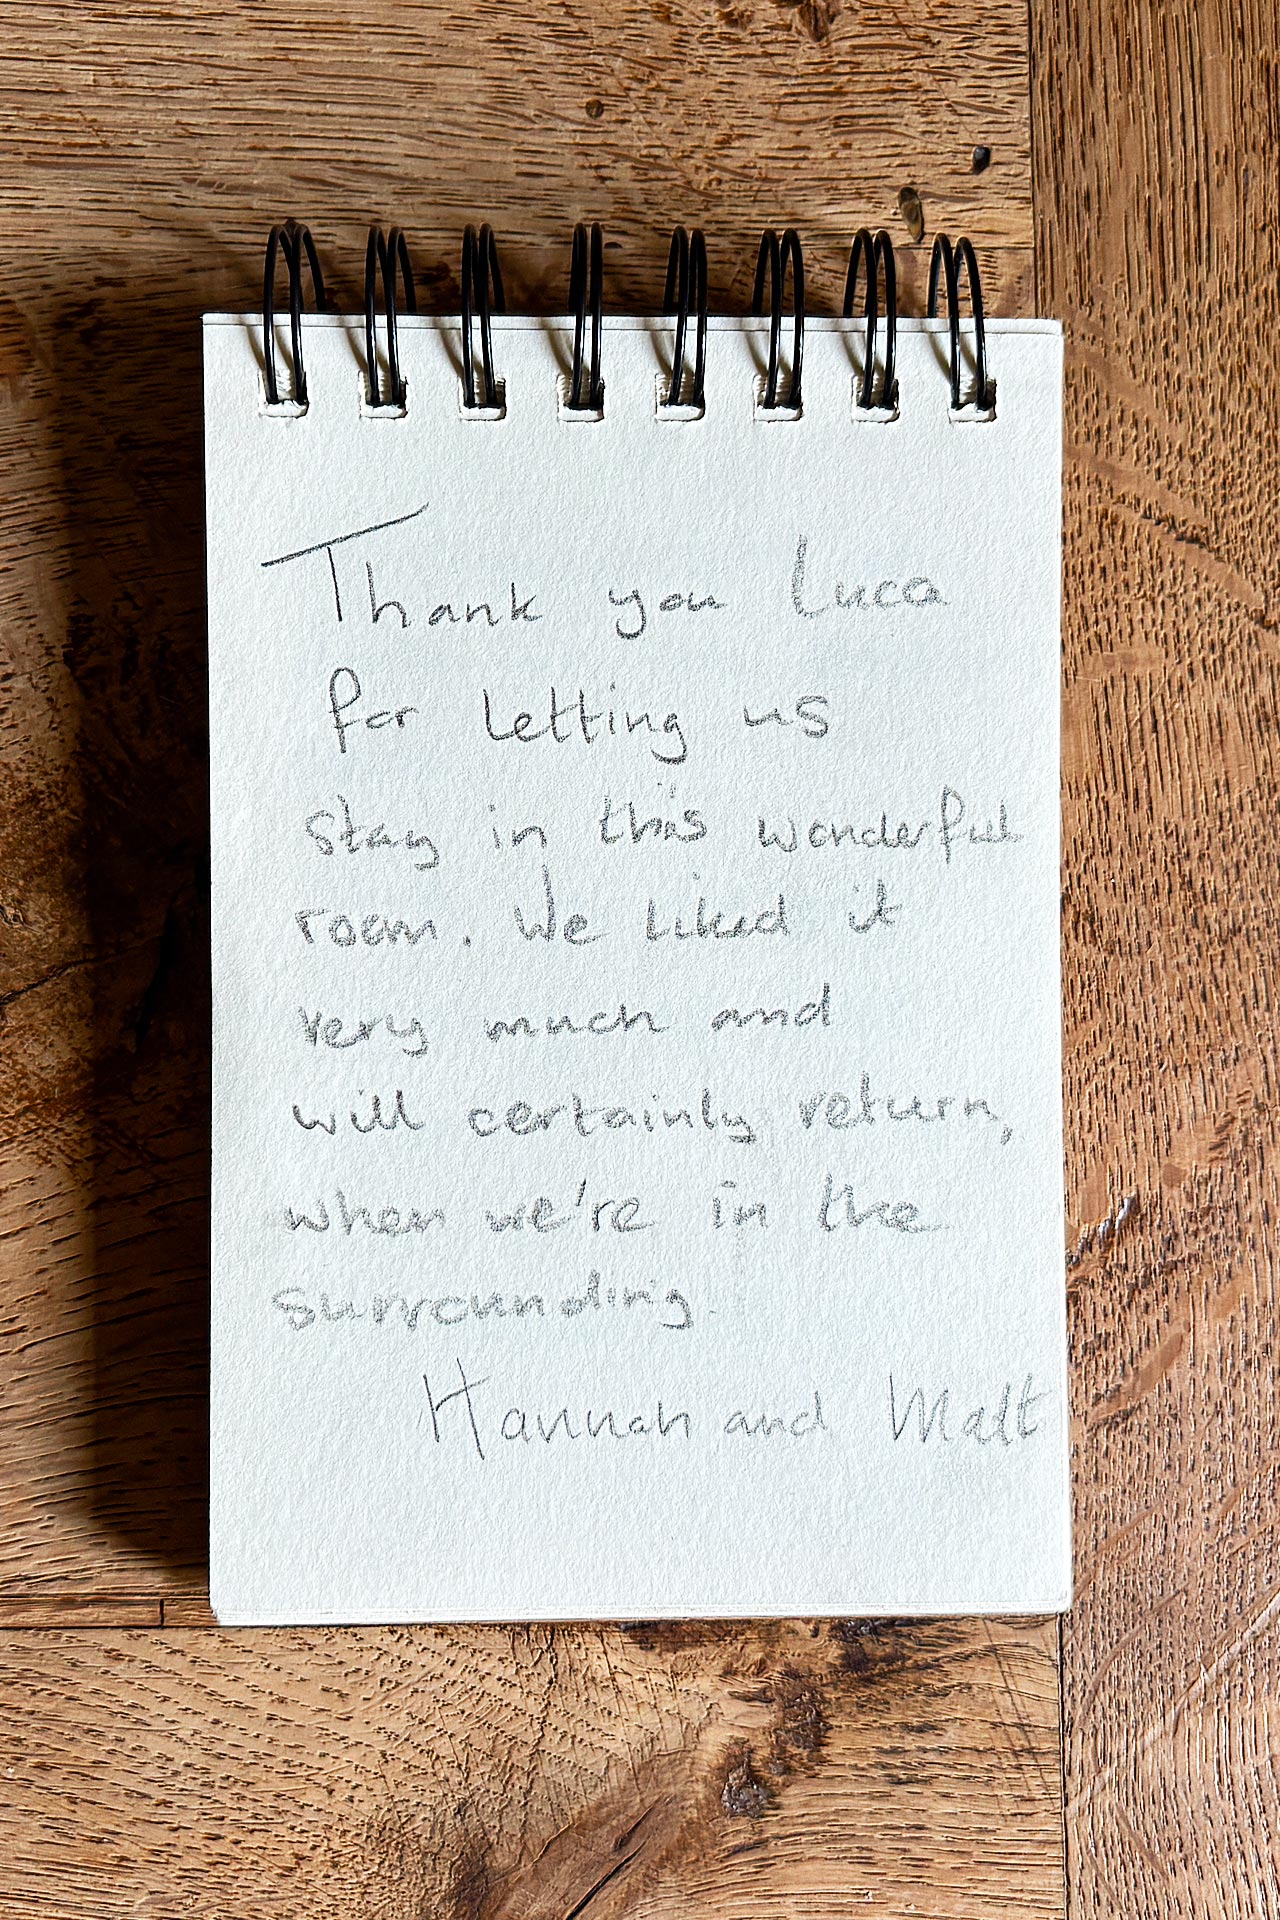 Thank you Luca
for letting us
stay in this wonderful
room. We liked it
very much and
will certainly return,
when we're in the
surrounding.
Hannah and Malt